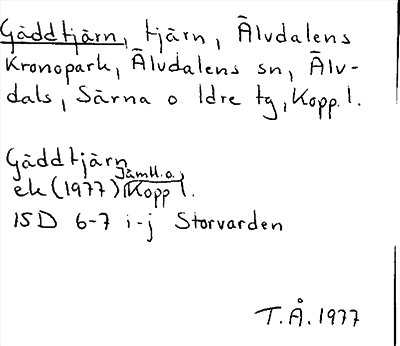 Gäddtjärn, tjärn, Älvdalens
Kronopark, Älvdalens sn, Älv-
dals, Särna o Idre tg, Kopp. l.
Gäddtjärn
Jämtl.o.
ek (1977) Kopp l.
15D 6-7 i-j Storvarden
T.Å. 1977